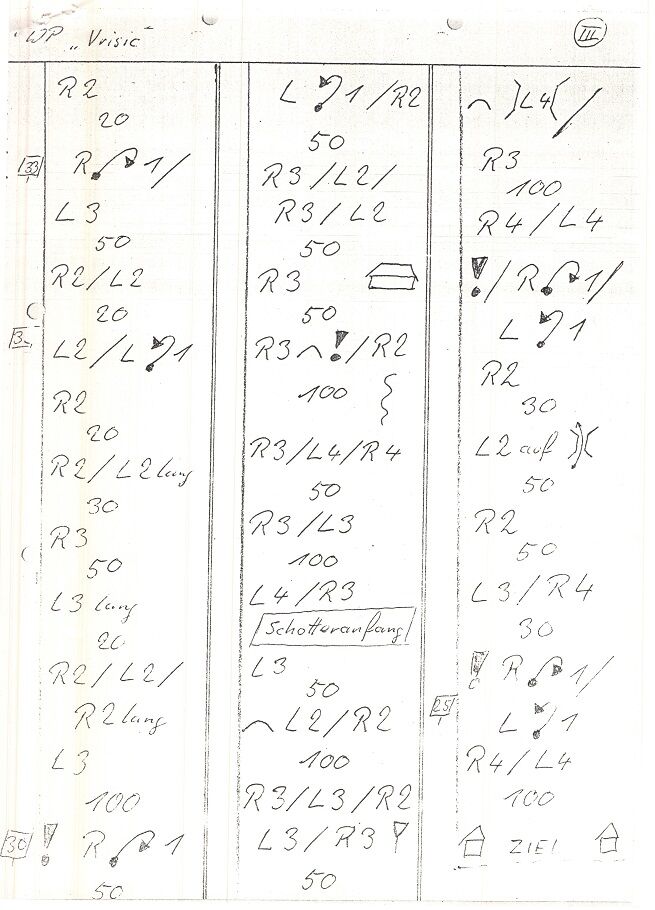 WP „Vrisic“
III
R2
20
33 R 1/
L3
50
R2/L2
20
L2/L 1
R2
20
R2/L2 lang
30
R3
50
L3 lang
20
R2/L2/
R2 lang
L3
100
30 ! R 1
50
L 1/R2
50
R3/L2/
R3/L2
50
R3
50
R3 !/R2
100
R3/L4/R4
50
R3/L3
100
L4/R3
Schotteranfang
L3
50
L2/R2
100
R3/L3/R2
L3/R3
50
)L4( /
R3
100
R4/L4
!/R 1/
L 1
R2
30
L2 auf )(
50
R2
50
L3/R4
30
! R 1/
25 L 1
R4/L4
100
ZIEL